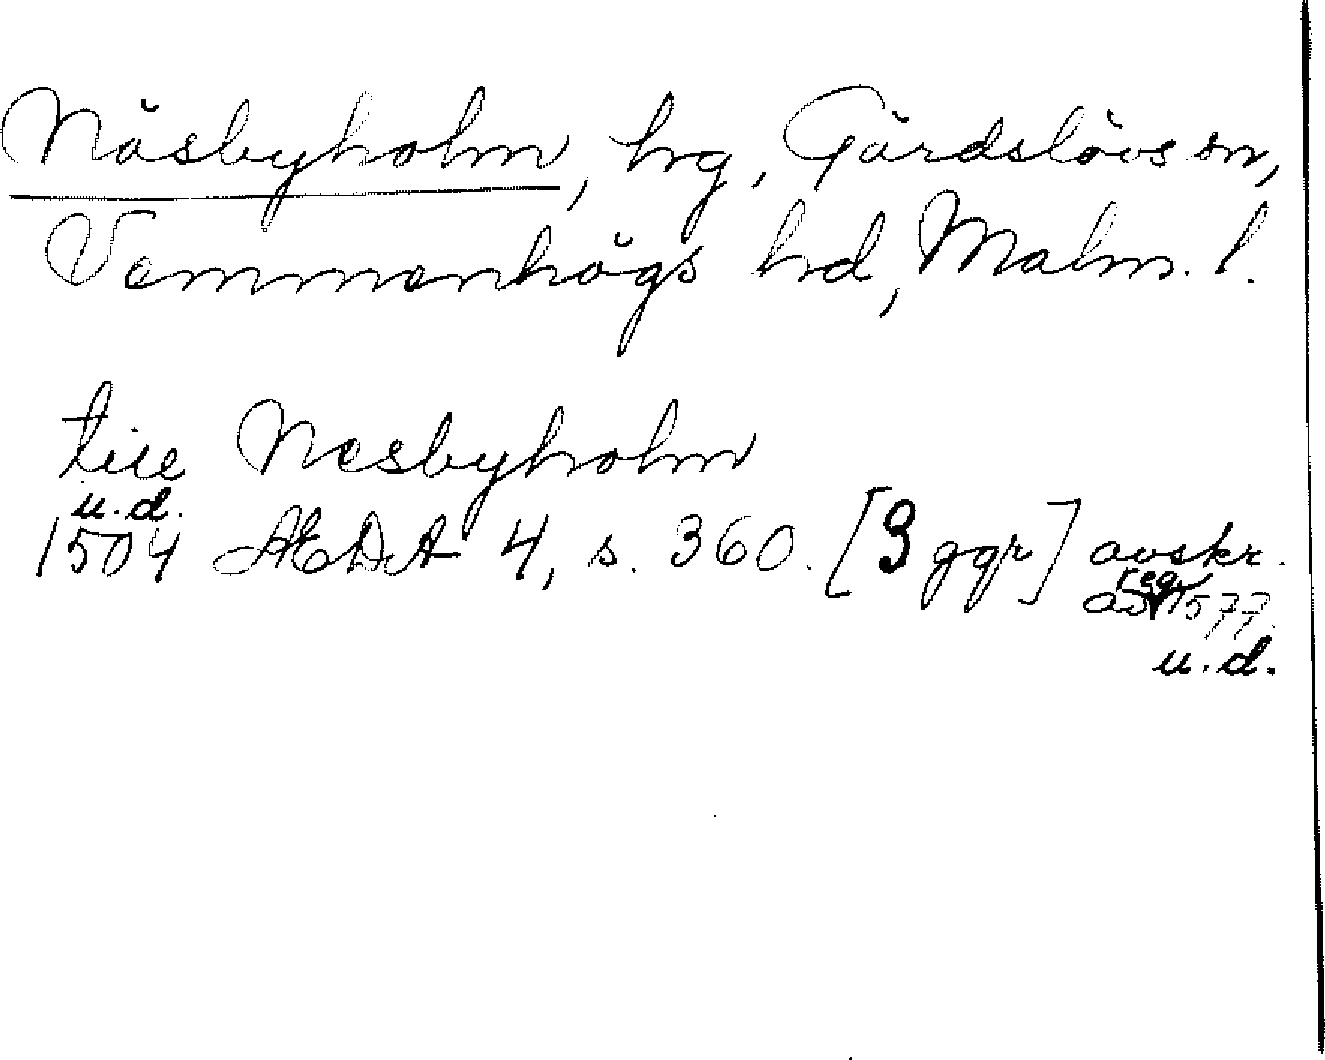 Näsbyholm, hrg, Gärdslövs sn,
Vemmenhögs hd, Malm. l.
till Nesbyholm
u.d.
1504 ÆDA 4, s. 360. [3 ggr] avskr.
reg.
av 1577.
u.d.